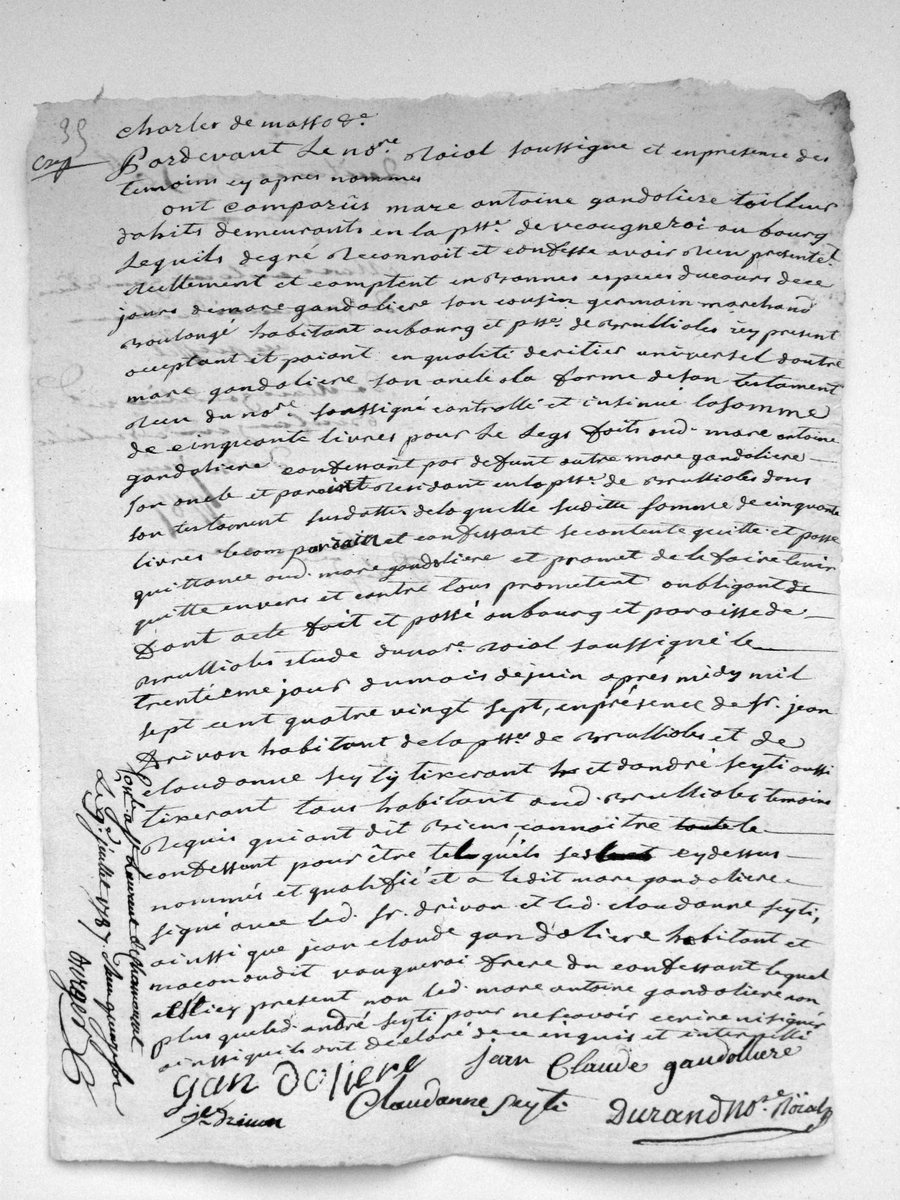 35
charles de masso &a
Pardevant Le nore. Roial soussigné et en presence des
temoins cy apres nommés
ont comparûs marc antoine gandoliere tailleur
dahits demeurants en la psse. de veaugneroi au bourg
Lequils degré Reconnoit et confesse avoir Reeu presentet.
Réellement et comptent en Bonnes especes du cours de ce
jours de marc gandoliere son cousin germain marchand
Boulangé habitant au bourg et psse. de Brullioles icy present
aceptant et paiant en qualité deritier universel dautre
marc gandoliere son oncle a la forme de son testament
Reeu du nore. soussigné controllé et insinue la somme
de cinquante livres pour Le Legs faits aud. marc antoine
gandoliere confessant par defunt autre marc gandoliere
son oncle et paraint Residant en la psse. de Brullioles dans
son testament susdatté de la quelle sudite somme de cinquante
livres le comparaiant et confessant se contente quitte et passe
quittance aud. marc gandoliere et promet de le faire tenir
quitte envers et contre tous prometent oubligant &c
Dont acte fait et passé au bourg et paroisse de
Brullioles etude du nore. Roial soussigné le
trentieme jour du mois de juin apres midy mil
sept cent quatre vingt sept, en présence de sr. jean
Drivon habitant de la psse. de Brullioles et de
claudanne seyty tixerant et dandré seyti aussi
tixerant tous habitant aud. Brullioles temoins
Requis qui ont dit Bien connoitre le
confessant pour être tel quéils cydessus
nommés et qualifié et a ledit marc gandoliere
signé avec led. sr. drivon et led. claudanne seyti,
ainssi que jean claude gandoliere habitant et
macon audit vaugnerai frere du confessant lequel
est icy present non led. marc antoine gandoliere non
plus que led. andré seyti pour ne scavoir ecrire ni signér
ainssi quils ont déclaré de ce inquis et interpellé
gandoliere
jean Claude gandolliere
je. drivon
Claudanne seyti
Durand nore. Roial
Laurent de chamousset
Le 9. juillet 1787